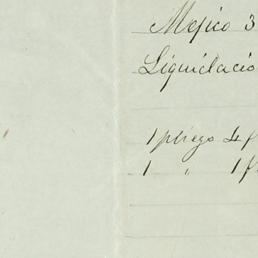 Mejico 3
Liquidacio
1 pliego 4 f
1 " 1 f